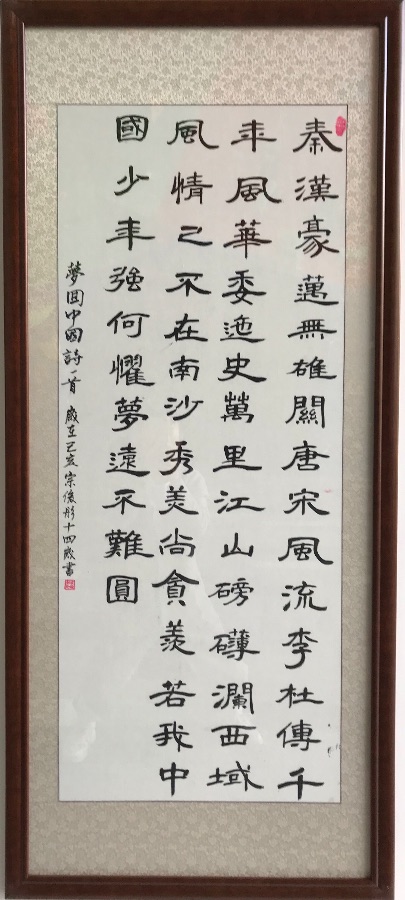 秦漢豪邁無雄關唐宋風流李杜傳千
年風華委迤史萬里江山磅礴瀾西域
風情已不在南沙秀美尚貪羨若我中
國少年強何懼夢遠不難圓
夢回中國詩一首 歲在己亥宗俊彤十四歲書